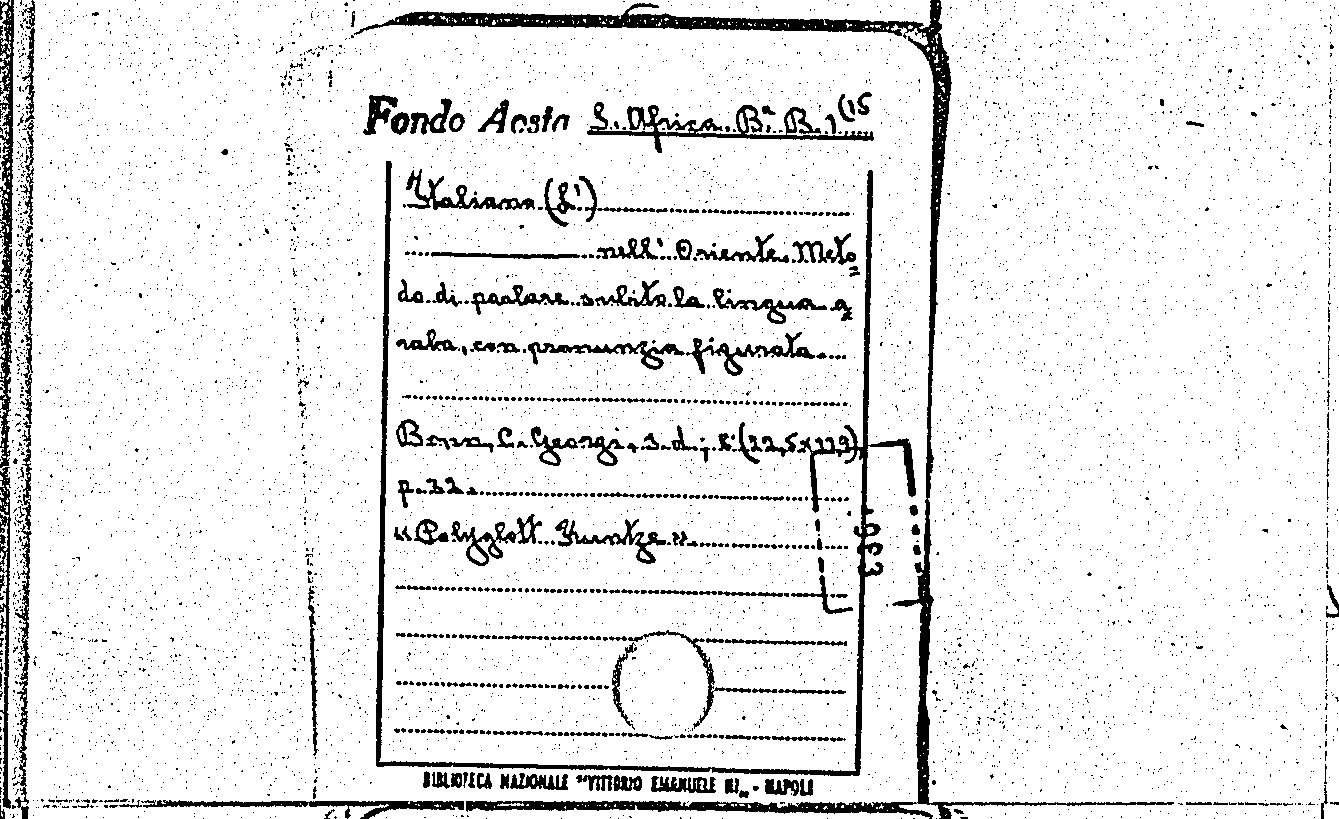 Fondo Aosta S. Africa B.ª B. 1(15
Italiano (L')
nell' Oriente. Meto=
do di parlare subito la lingua a=
raba, con pronunzia figurata.
Bonn, C. Georgi, s. d.; 8° (22,5x11,9),
p. 32.
«Polyglott Kuntze».
BIBLIOTECA NAZIONALE "VITTORIO EMANUELE III„ - NAPOLI